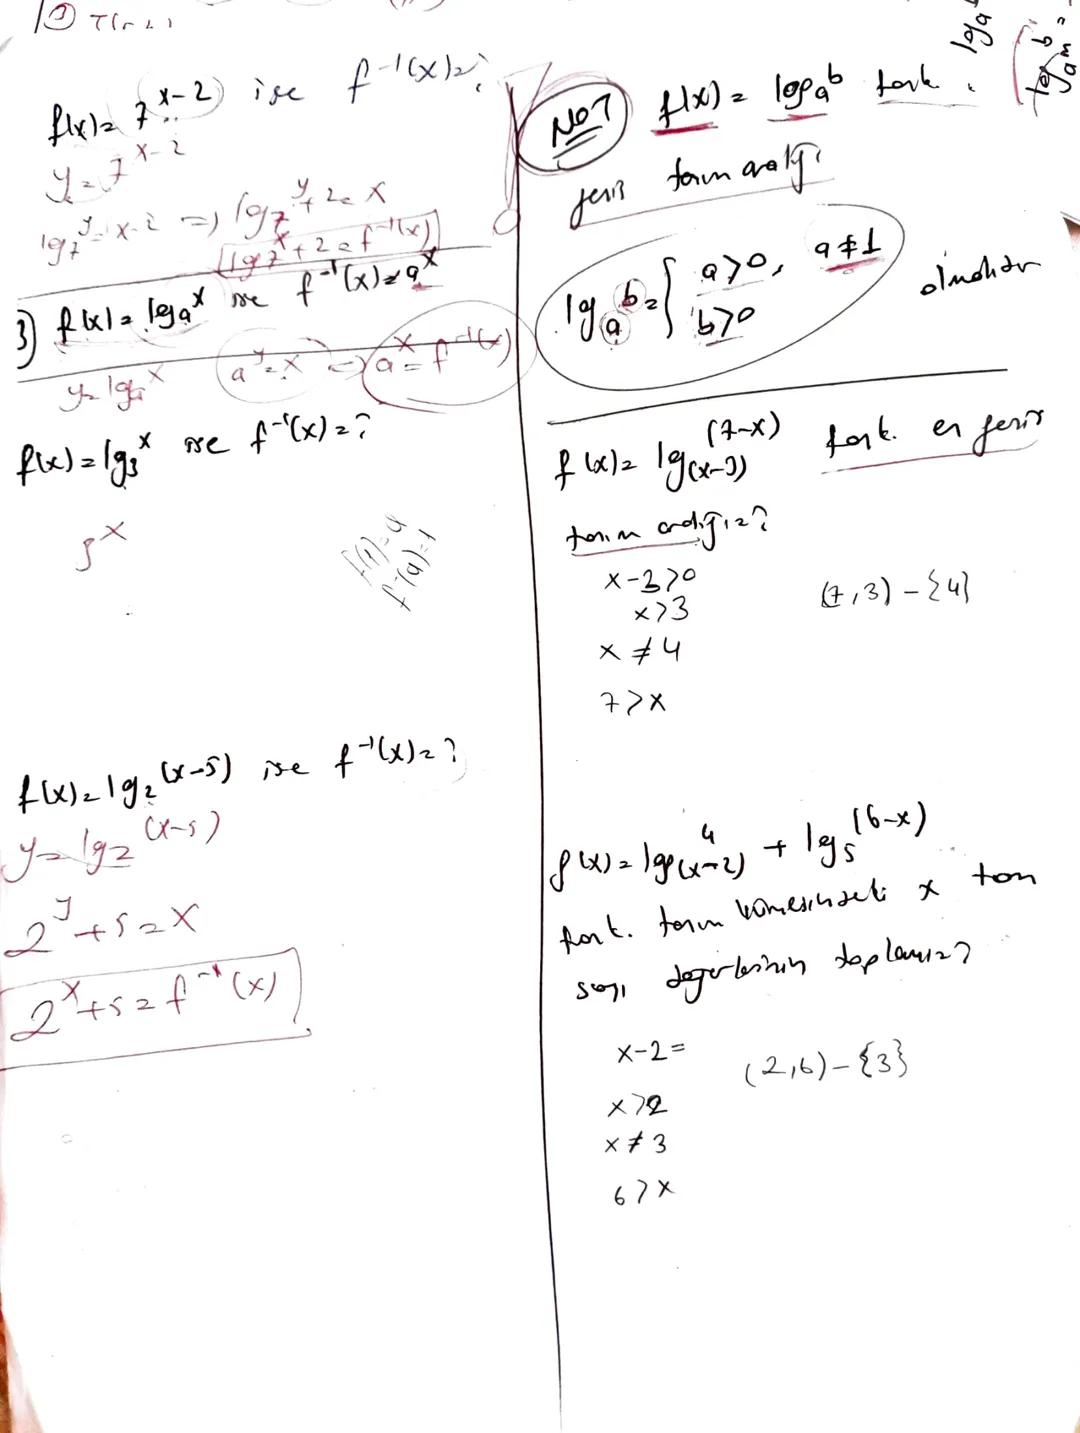 f(x) = 7^(x-2) ise f^-1(x) = ?
y = 7^(x-2)
log_7^y = x-2 => log_7^y + 2 = x
log_7^x + 2 = f^-1(x)
3) f(x) = log_a^x ise f^-1(x) = a^x
y = log_a^x a^y = x => a^x = f^-1(x)
f(x) = log_3^x ise f^-1(x) = ?
3^x
f(1) = 4
f^-1(4) = 1
f(x) = log_2^(x-5) ise f^-1(x) = ?
y = log_2^(x-5)
2^y + 5 = x
2^x + 5 = f^-1(x)
NOT f(x) = log_a^b fonk.
geniş tanım aralığı
log_a^b = { a>0, a≠1 olmalıdır
b>0
f(x) = log_(x-3)^(7-x) fonk. en geniş
tanım aralığı = ?
x-3>0
x>3
x≠4
7>x
(7,3) - {4}
f(x) = log_(x-2)^4 + log_5^(6-x)
fonk. tanım kümesindeki x tam
sayı değerlerinin toplamı = ?
x-2=
x>2
x≠3
6>x
(2,6) - {3}